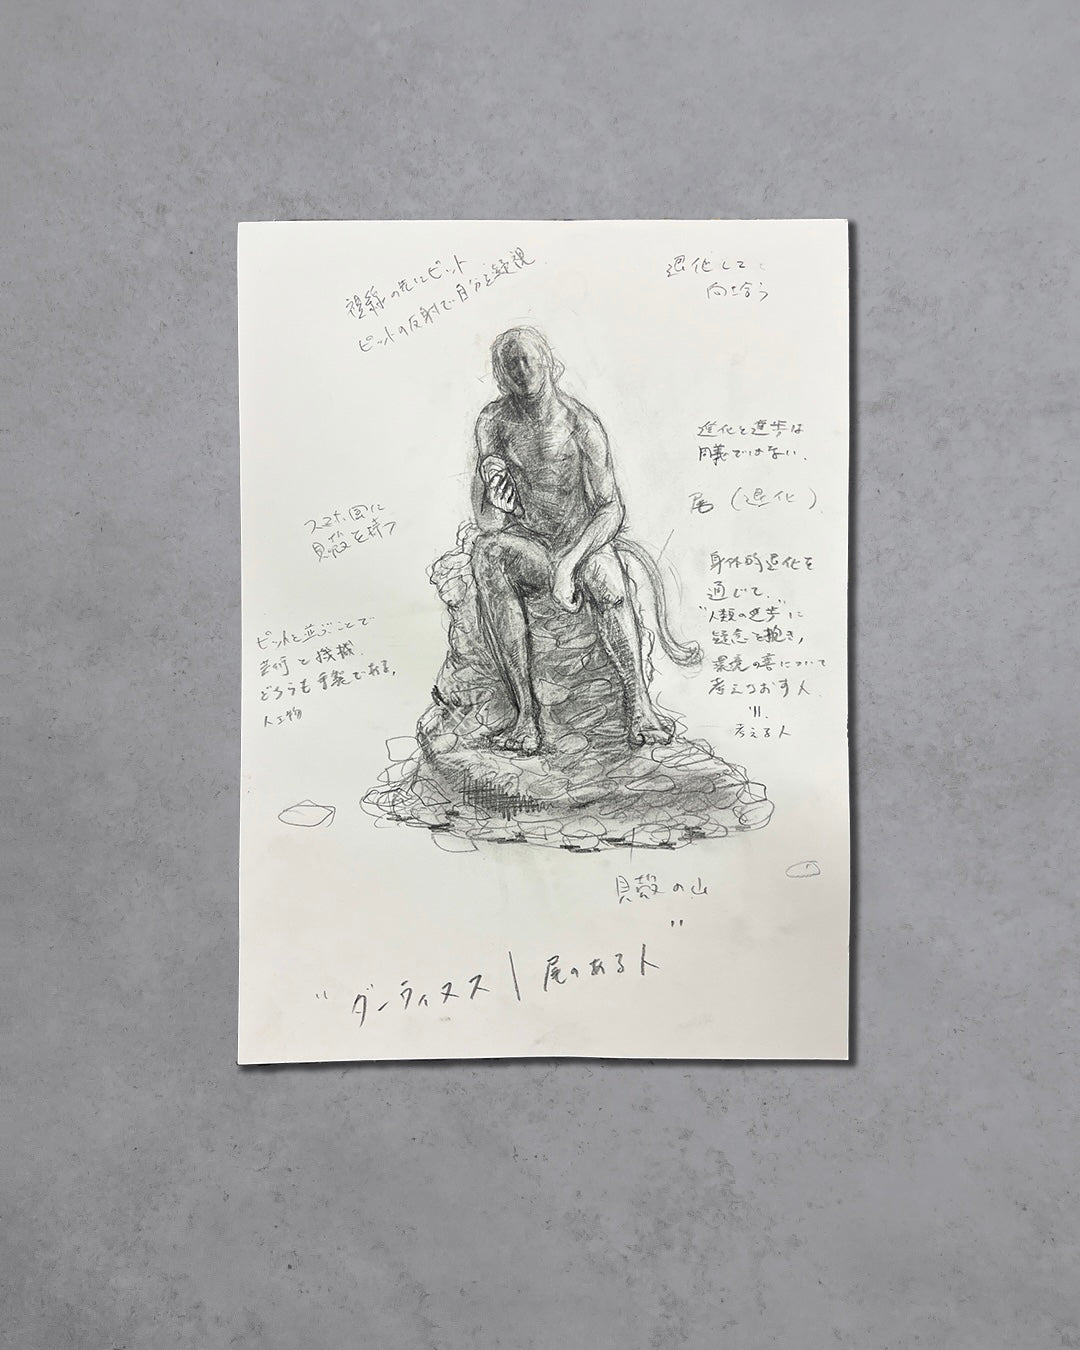 視線の先にピット
ピットの反射で自分を凝視
退化して
向き合う
進化と進歩は
同義ではない、
尾 (退化)
スマホ風に
貝殻を持つ
身体的退化を
通じて、
"人類の進歩"に
疑念を抱き,
環境の害について
考えなおす人
考える人
ピットと並ぶことで
芸術と機械
どちらも手製である,
人工物
貝殻の山
"ダーウィヌス | 尾のある人"